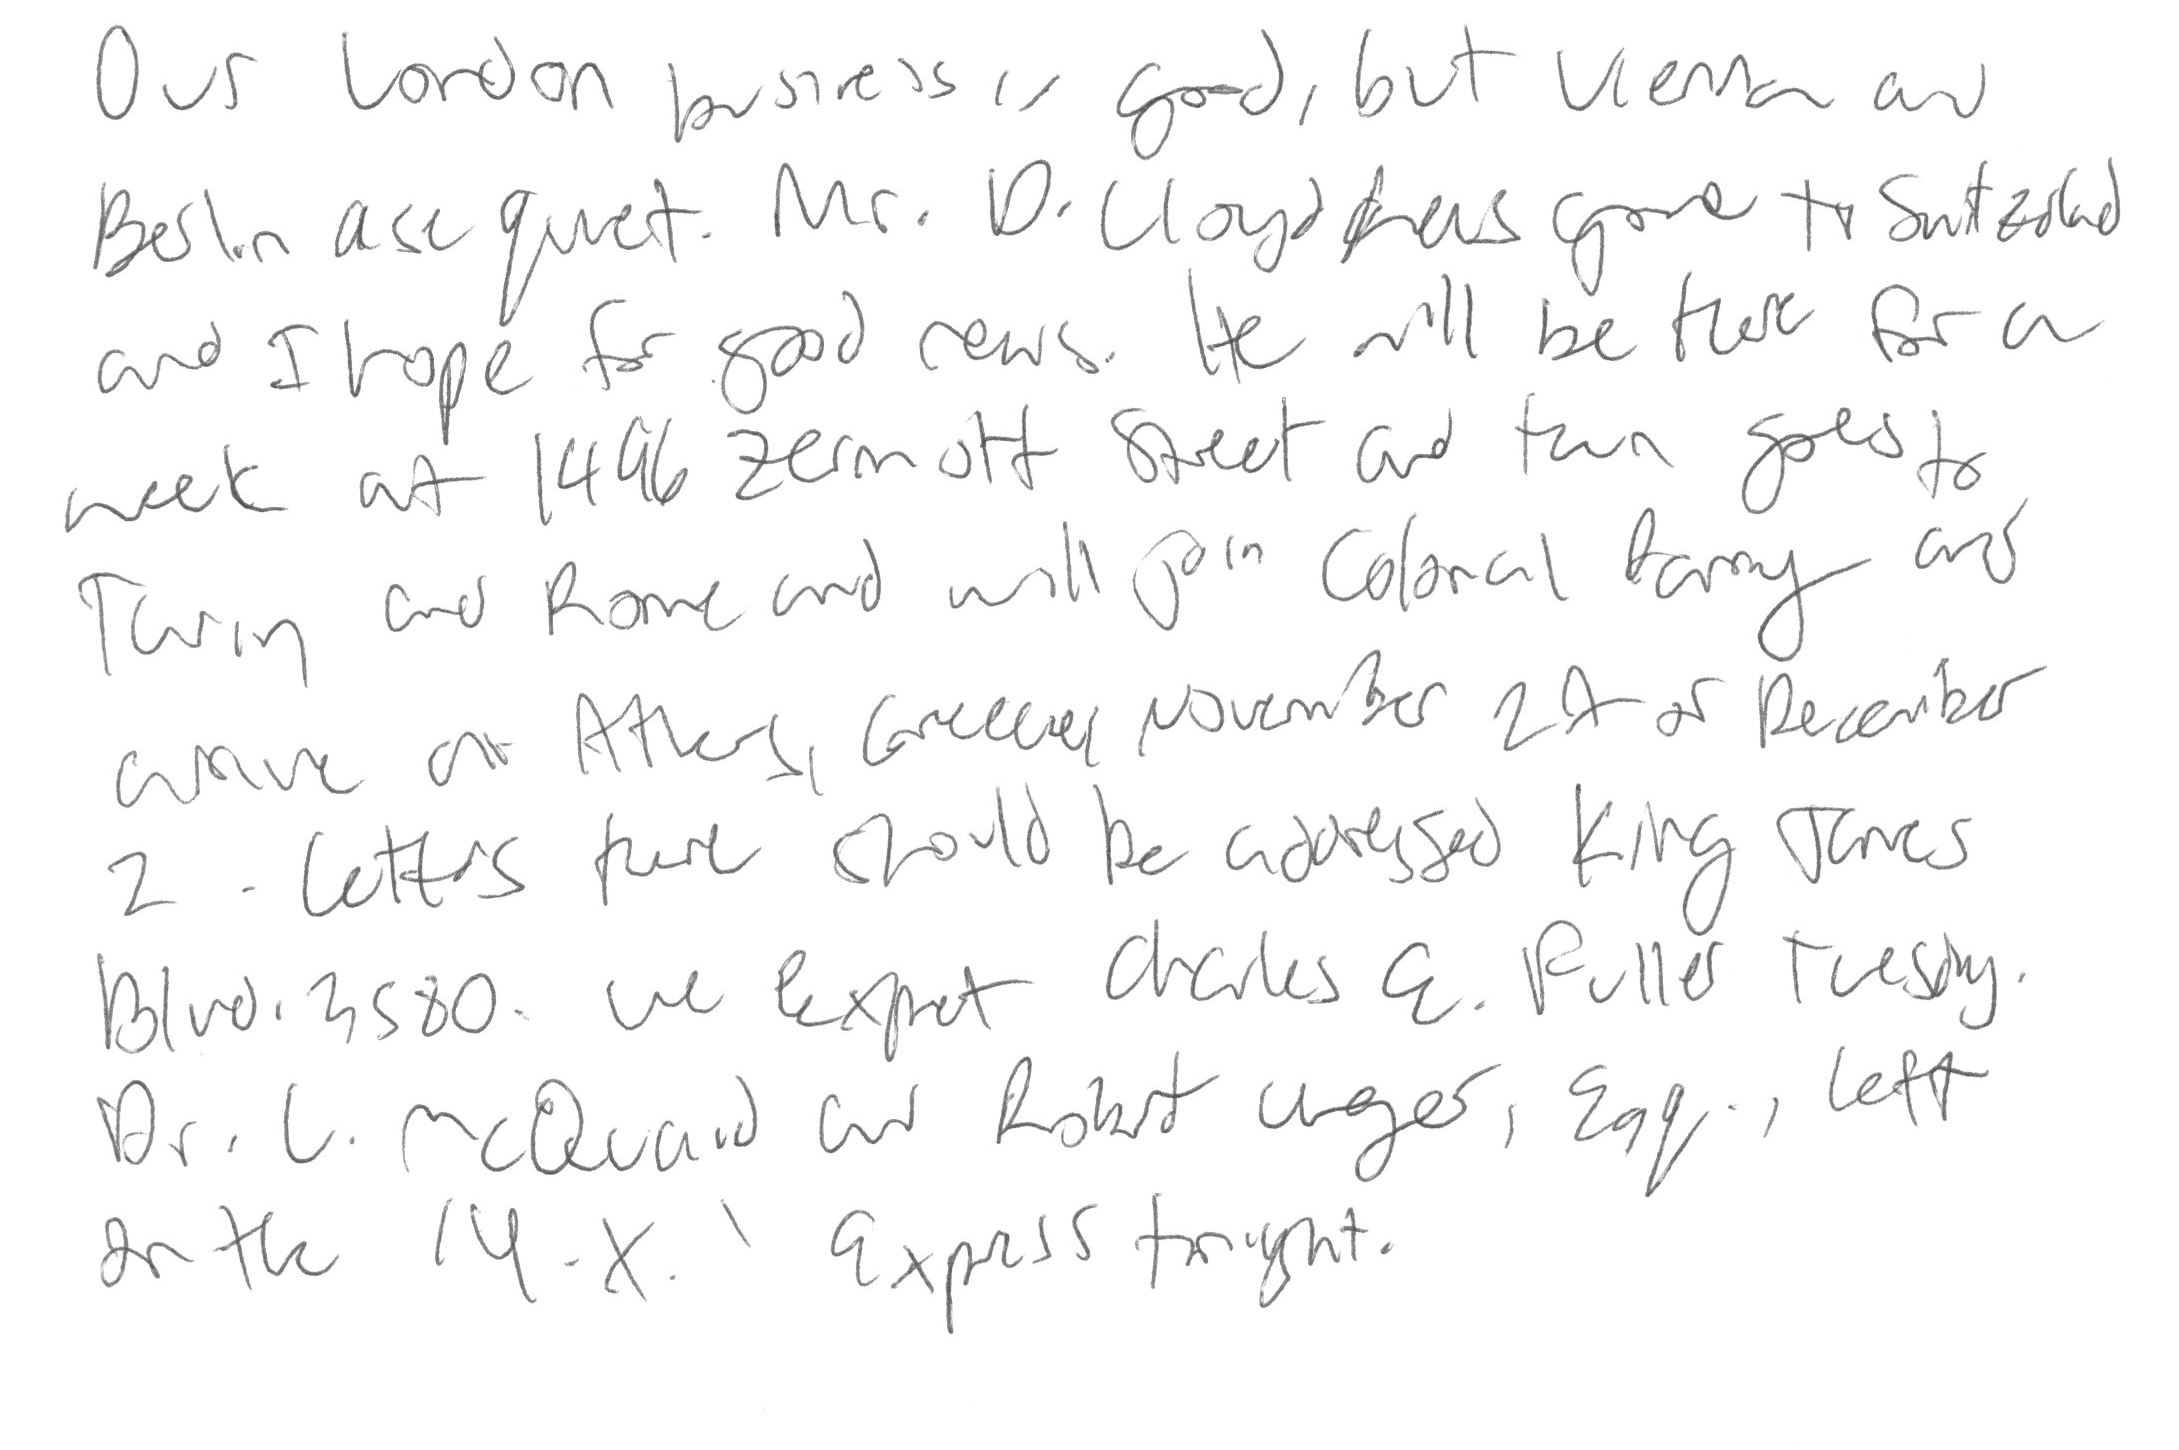 Our London business is good, but Vienna and
Berlin are quiet. Mr. D. Lloyd has gone to Switzerland
and I hope for good news. He will be there for a
week at 1496 Zermott Street and then goes to
Turin and Rome and will join Colonial Parry and
arrive at Athens, Greece, November 27 or December
2. Letters there should be addressed King James
Blvd. 3580. We expect Charles E. Fuller Tuesday.
Dr. L. McQuaid and Robert Unger, Esq., left
on the 'Y.X.' Express tonight.